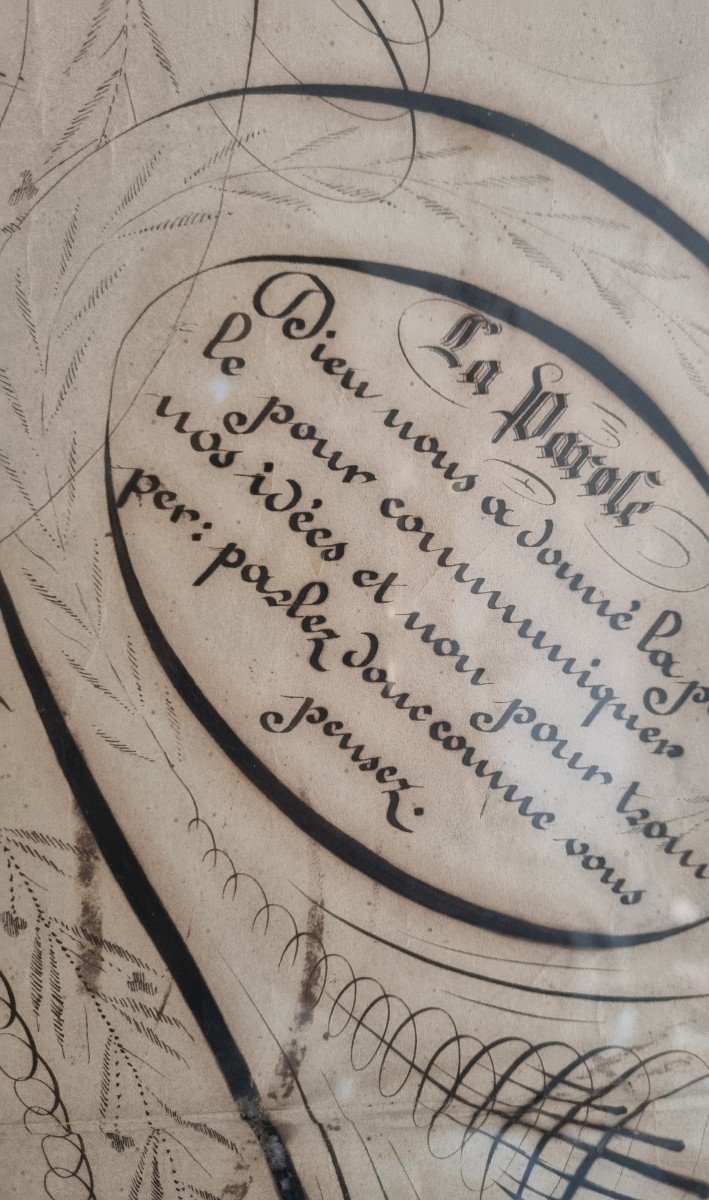 La Parole
Dieu nous a donné la p
le pour communiquer
nos idées et non pour trom
per: parlez donc comme vous
pensez.